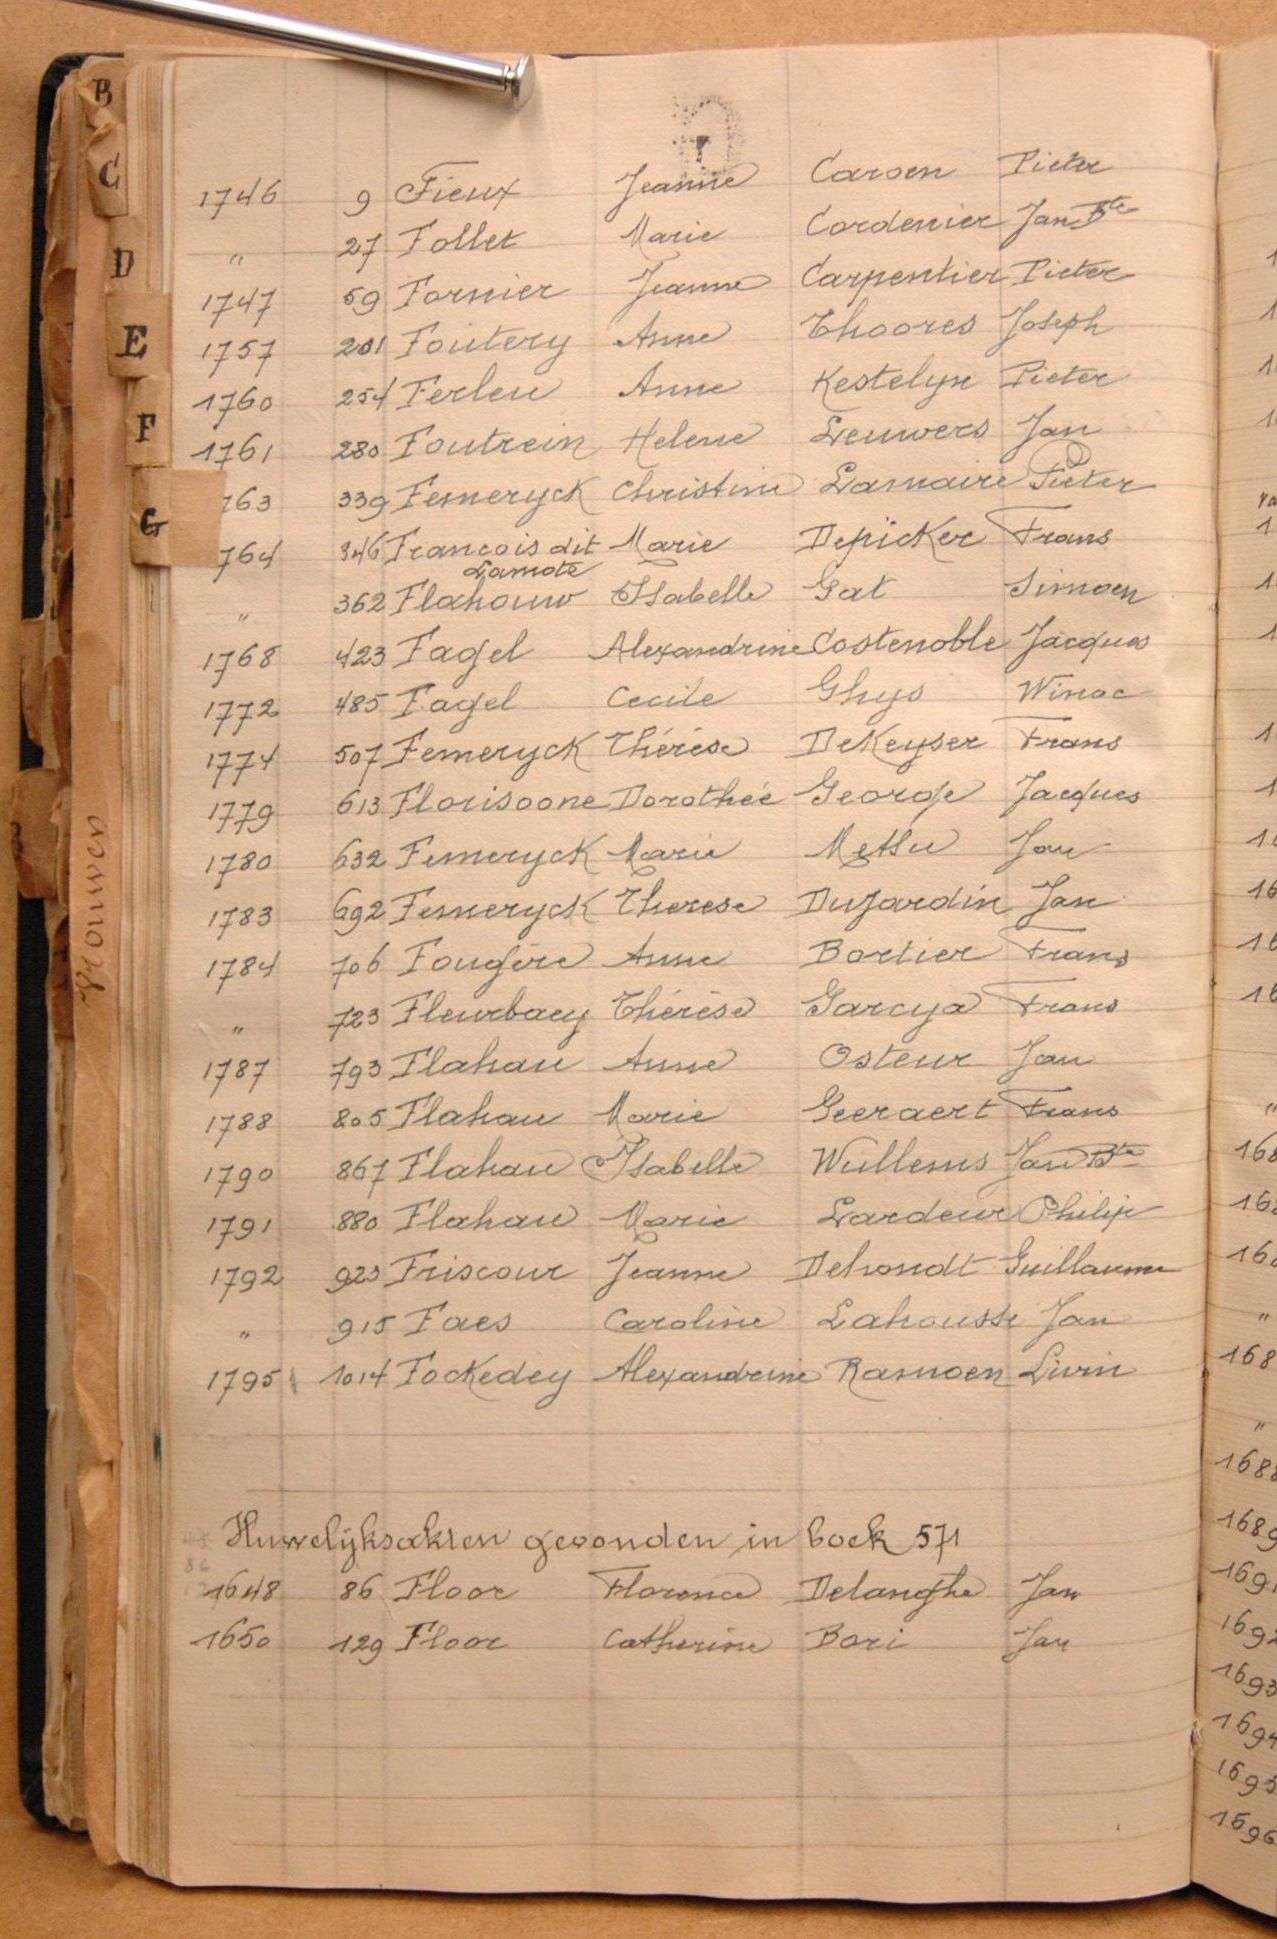 B
C
D
E
F
G
Vrouwen
F
1746 9 Fieux Jeanne Caroen Pieter
" 27 Follet Marie Cordenier Jan Bte
1747 59 Fornier Jeanne Carpentier Pieter
1757 201 Foutery Anne Thoores Joseph
1760 254 Ferleu Anne Kestelyn Pieter
1761 280 Foutrein Helene Leuwers Jan
763 339 Femeryck Christine Lamaire Pieter
764 346 Francois dit Marie Depicker Frans
Lamote
" 362 Flahouw Isabelle Gat Simoen
1768 423 Fagel Alexandrine Costenoble Jacques
1772 485 Fagel Cecile Ghys Winoc
1774 507 Femeryck Thérèse DeKeyser Frans
1779 613 Florisoone Dorothée George Jacques
1780 632 Femeryck Marie Methu Jan
1783 692 Femeryck Therese Dujardin Jan
1784 706 Fougère Anne Bortier Frans
" 723 Fleurbaey Thérèse Garcya Frans
1787 793 Flahau Anne Osteur Jan
1788 805 Flahau Marie Geeraert Frans
1790 867 Flahau Isabelle Wullems Jan Bte
1791 880 Flahau Marie Lardeur Philip
1792 923 Friscour Jeanne Dehondt Guillaume
" 915 Faes Caroline Lahousse Jan
1795 1014 Fockedey Alexandrine Ramoen Livin
Huwelijksakten gevonden in boek 571
1648 86 Floor Florence Delanghe Jan
1650 129 Floor Catherine Bari Jan
1688
1689
1691
1692
1693
1694
1695
1696